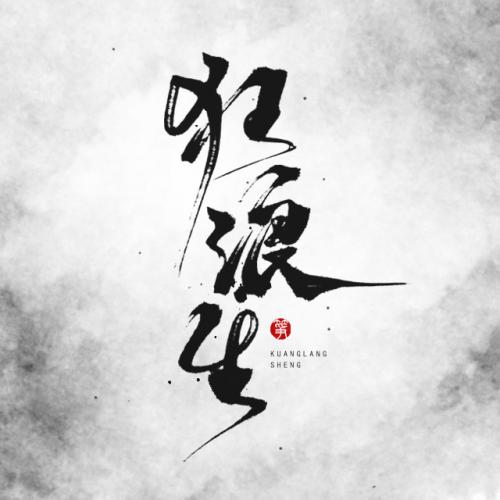 狂浪生
KUANGLANG
SHENG